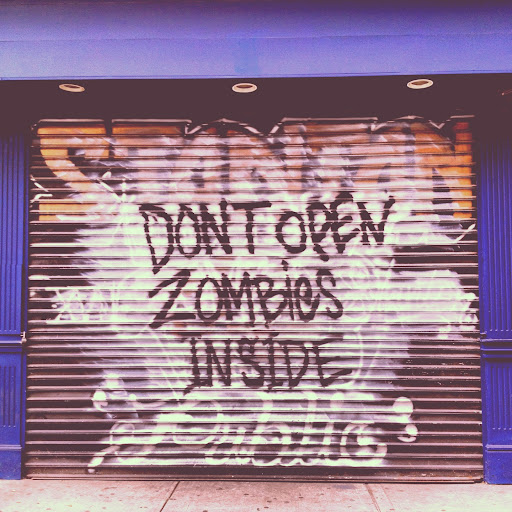 DONT OPEN
ZOMBIES
INSIDE